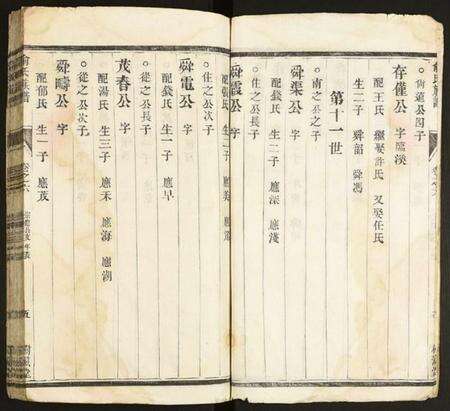 ○尚進公四子
存僅公 字 滕溪
配王氏 繼娶許氏 又娶任氏
生二子 舜韶 舜馮
第十一世
○南之公之子
舜渠公 字
配錢氏 生二子 應深 應淺
○仕之公長子
舜霞公 字
配 氏 生二子 應美
○仕之公次子
舜電公 字
配錢氏 生一子 應早
○從之公長子
茂春公 字
配湯氏 生三子 應禾 應海 應湖
○從之公次子
舜疇公 字
配郁氏 生一子 應茂
卷之六
五